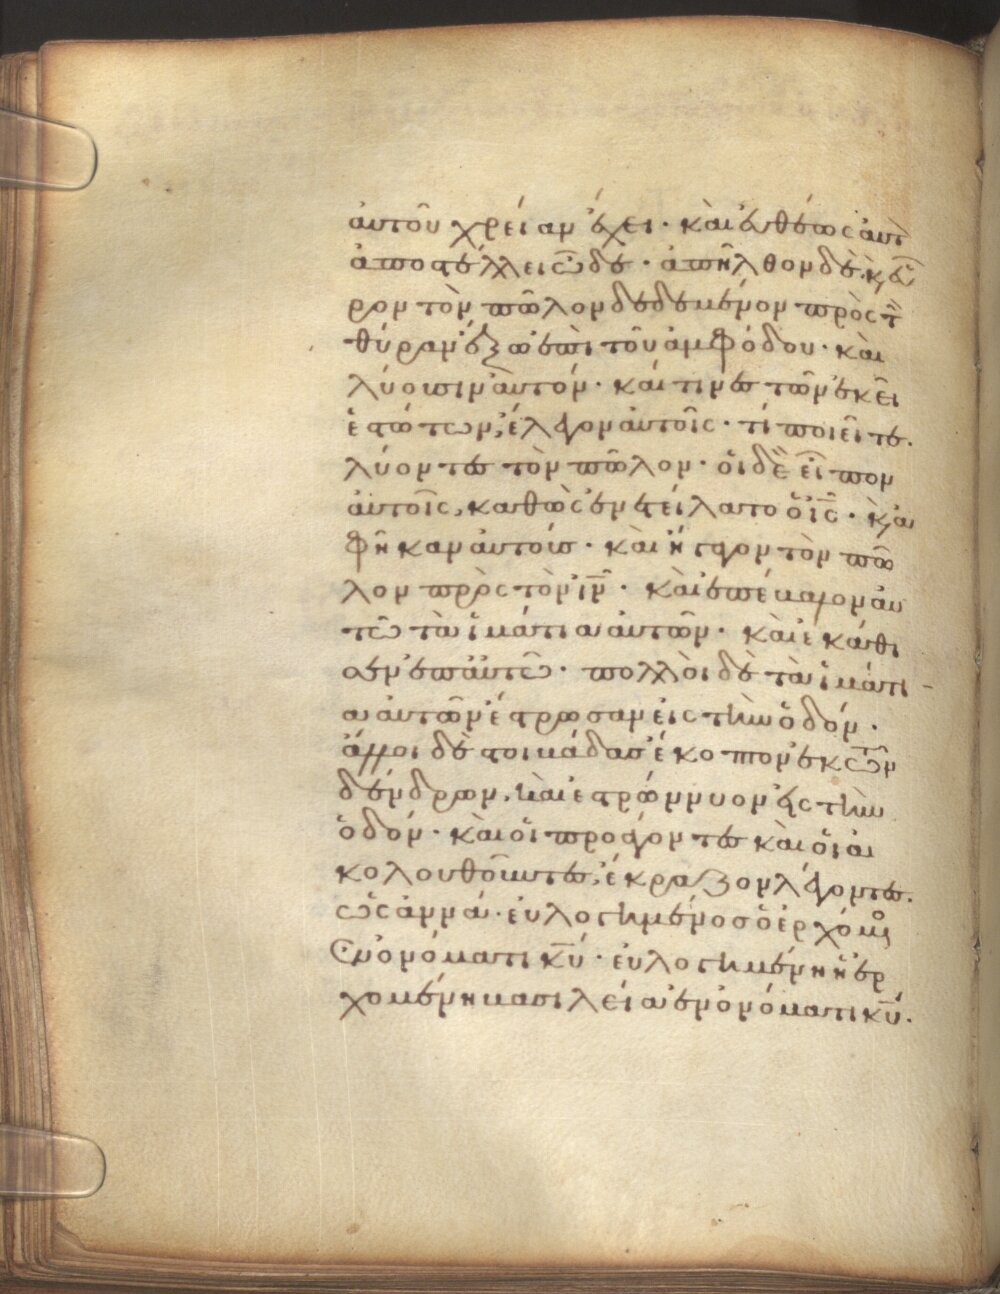 ἀυτοῦ χρείαν ἔχει · καὶ ἐυθέως ἀυτὸ
ἀποστέλλει ὧδε · ἀπῆλθον δὲ. κ(αὶ) ἕυ
ρον τὸν πῶλον δεδεμένον πρὸς τὴ(ν)
θύραν ἔξω ἐπὶ τοῦ ἀμφόδου · καὶ
λύουσιν ἀυτόν · καί τινες τῶν ἐκεῖ
ἑστώτων, ἔλεγον ἀυτοῖς · τί ποιεῖτε.
λύοντες τὸν πῶλον · ὁι δὲ εἶπον
ἀυτοῖς, καθὼς ἐνετείλατο ὁ ἰ̅ς̅ · κ(αὶ) ἀ
φῆκαν ἀυτούσ · καὶ ἤγαγον τὸν πῶ
λον πρὸς τὸν ἰ̅ν̅ · καὶ ἐπέβαλον ἀυ
τῶ τὰ ἱμάτια ἀυτῶν · καὶ ἐκάθι
σεν ἐπ ἀυτῶ · πολλοὶ δὲ τὰ ἱμάτι
α ἀυτῶν ἔστρωσαν ἐις τὴν ὁδόν ·
ἄλλοι δὲ στοιβάδασ ἔκοπτον ἐκ τῶν
δένδρων, καὶ ἐστρώννυον ἐις τὴν
ὁδόν · καὶ ὁι προάγοντες καὶ ὁι ἀ
κολουθοῦντες, ἔκραζον λέγοντες.
ὡσαννά · ἐυλογημένοσ ὁ ἐρχόμε(νος)
Ἐν ὀνόματι κ̅υ̅ · ἐυλογημένη ἡ ἐρ
χομένη βασιλεία ἐν ὀνόματι κ̅υ̅.